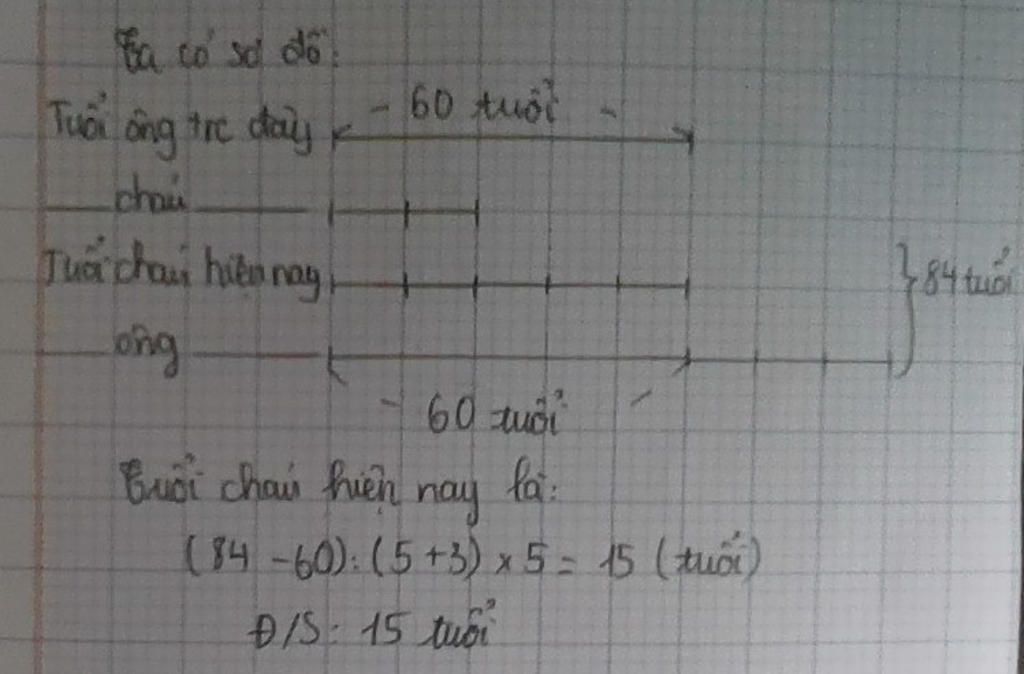 Ta có sơ đồ:
Tuổi ông trc đây
- 60 tuổi -
cháu
Tuổi cháu hiện nay
84 tuổi
ông
- 60 tuổi -
Tuổi cháu hiện nay là:
(84 - 60) : (5 + 3) × 5 = 15 (tuổi)
Đ/S: 15 tuổi